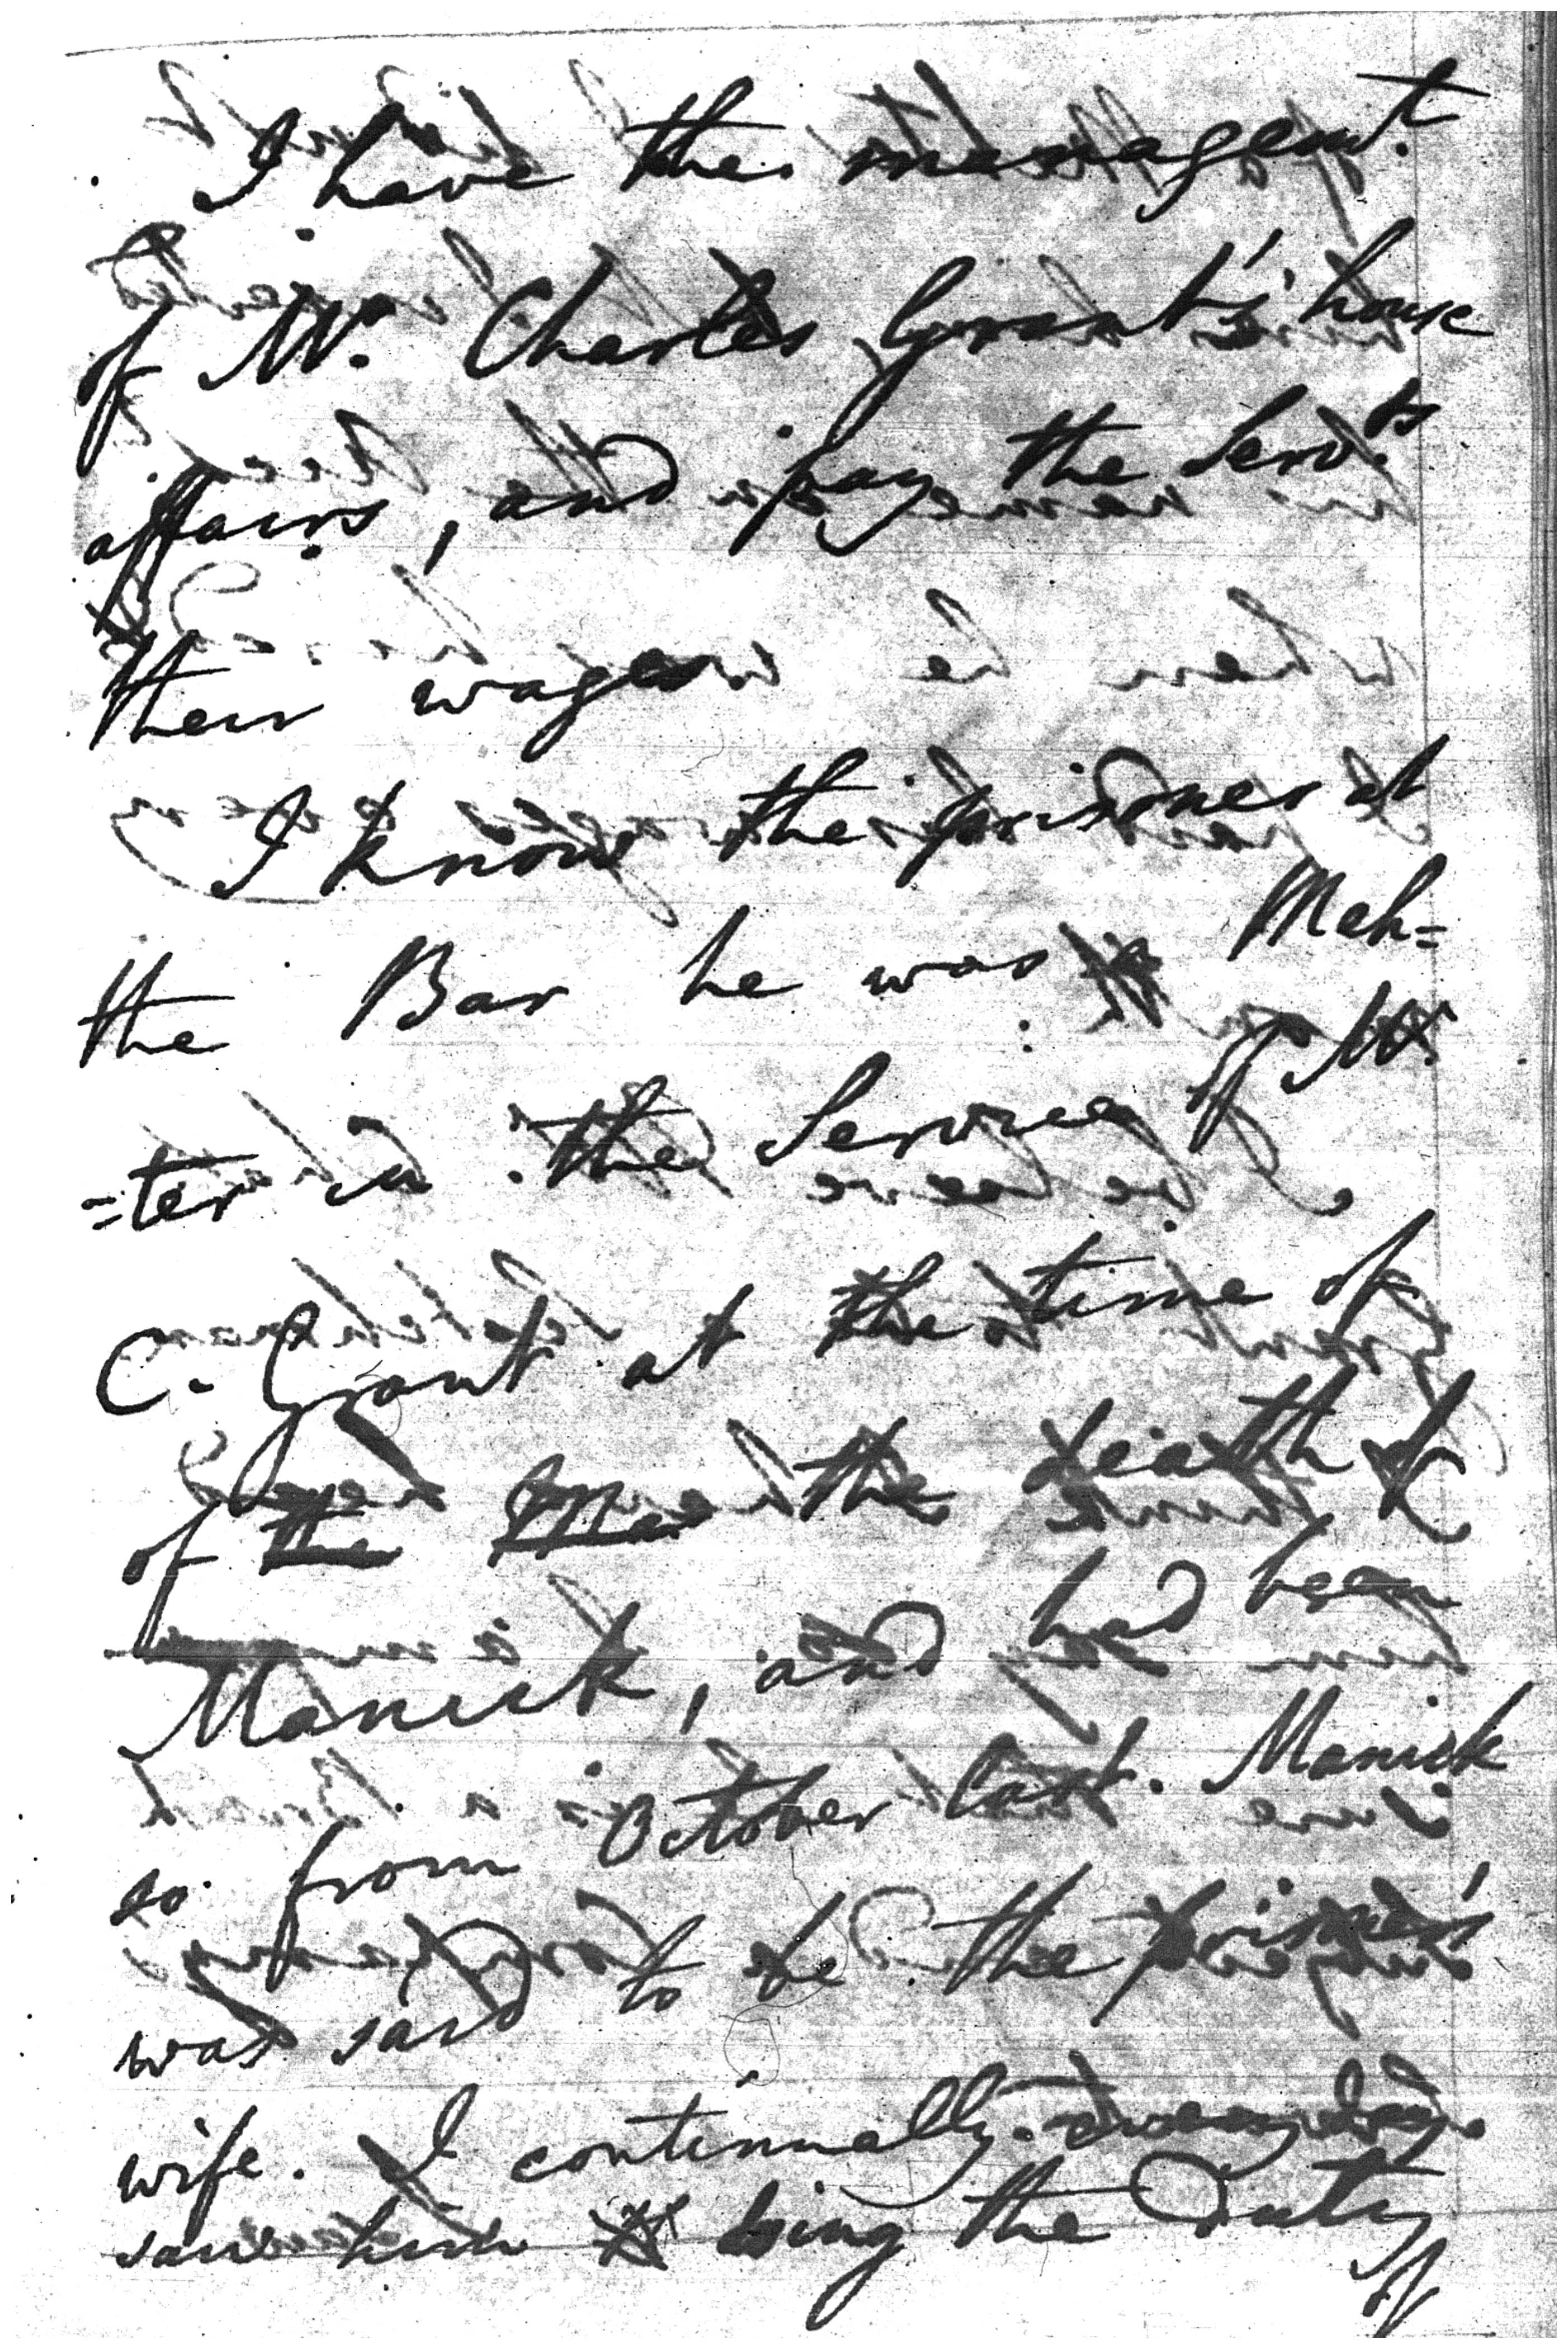 I have the managent.
of Mr. Charles Grant's house
affairs, and pay the Servts
their wages
I know the prisoner at
the Bar he was Meh=
=ter in the Service of Mr.
C. Grant at the time of
of the the death of
Manick, and had been
so from October last. Manick
was said to be the prisoner's
wife. I continually every day
saw him doing the Duty
of